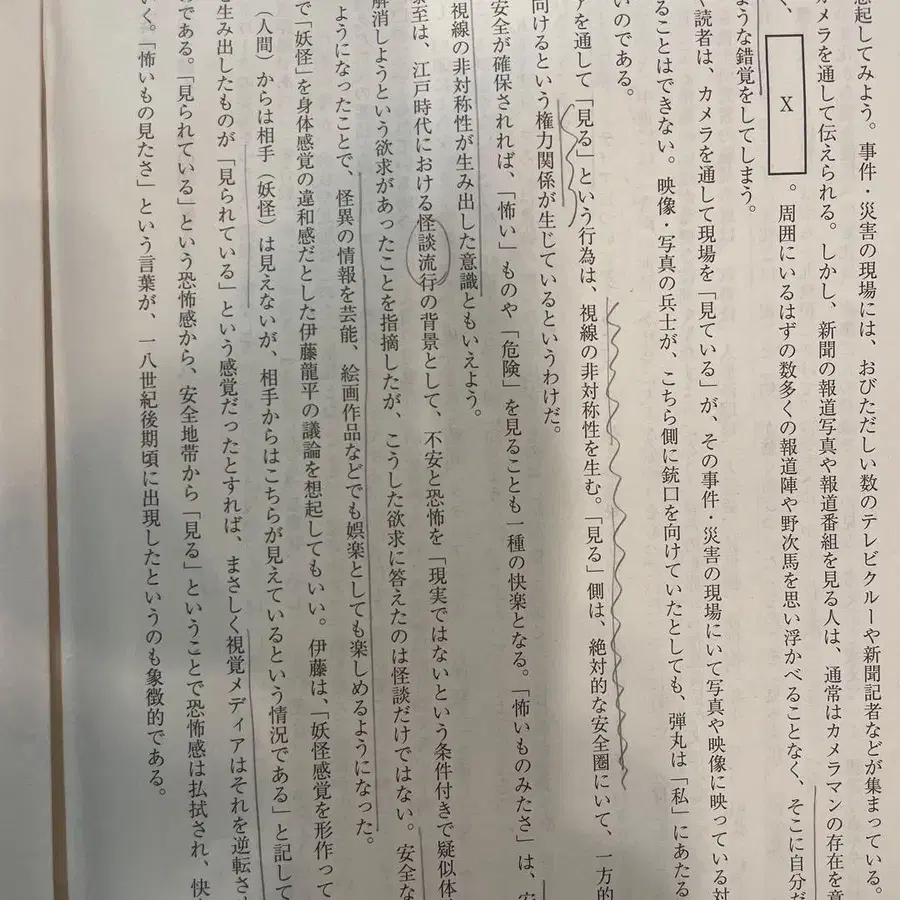 想起してみよう。事件・災害の現場には、おびただしい数のテレビクルーや新聞記者などが集まっている。
カメラを通して伝えられる。しかし、新聞の報道写真や報道番組を見る人は、通常はカメラマンの存在を意
く、X。周囲にいるはずの数多くの報道陣や野次馬を思い浮かべることなく、そこに自分だ
ような錯覚をしてしまう。
く読者は、カメラを通して現場を「見ている」が、その事件・災害の現場にいて写真や映像に映っている対
ることはできない。映像・写真の兵士が、こちら側に銃口を向けていたとしても、弾丸は「私」にあたる
いのである。
アを通して「見る」という行為は、視線の非対称性を生む。「見る」側は、絶対的な安全圏にいて、一方的
向けるという権力関係が生じているというわけだ。
安全が確保されれば、「怖い」ものや「危険」を見ることも一種の快楽となる。「怖いものみたさ」は、安
視線の非対称性が生み出した意識ともいえよう。
至は、江戸時代における怪談流行の背景として、不安と恐怖を「現実ではないという条件付きで疑似体
解消しようという欲求があったことを指摘したが、こうした欲求に答えたのは怪談だけではない。安全な
ようになったことで、怪異の情報を芸能、絵画作品などでも娯楽としても楽しめるようになった。
で「妖怪」を身体感覚の違和感だとした伊藤龍平の議論を想起してもいい。伊藤は、「妖怪感覚を形作って
（人間）からは相手（妖怪）は見えないが、相手からはこちらが見えているという情況である」と記して
を生み出したものが「見られている」という感覚だったとすれば、まさしく視覚メディアはそれを逆転さ
のである。「見られている」という恐怖感から、安全地帯から「見る」ということで恐怖感は払拭され、快
いく。「怖いもの見たさ」という言葉が、一八世紀後期頃に出現したというのも象徴的である。